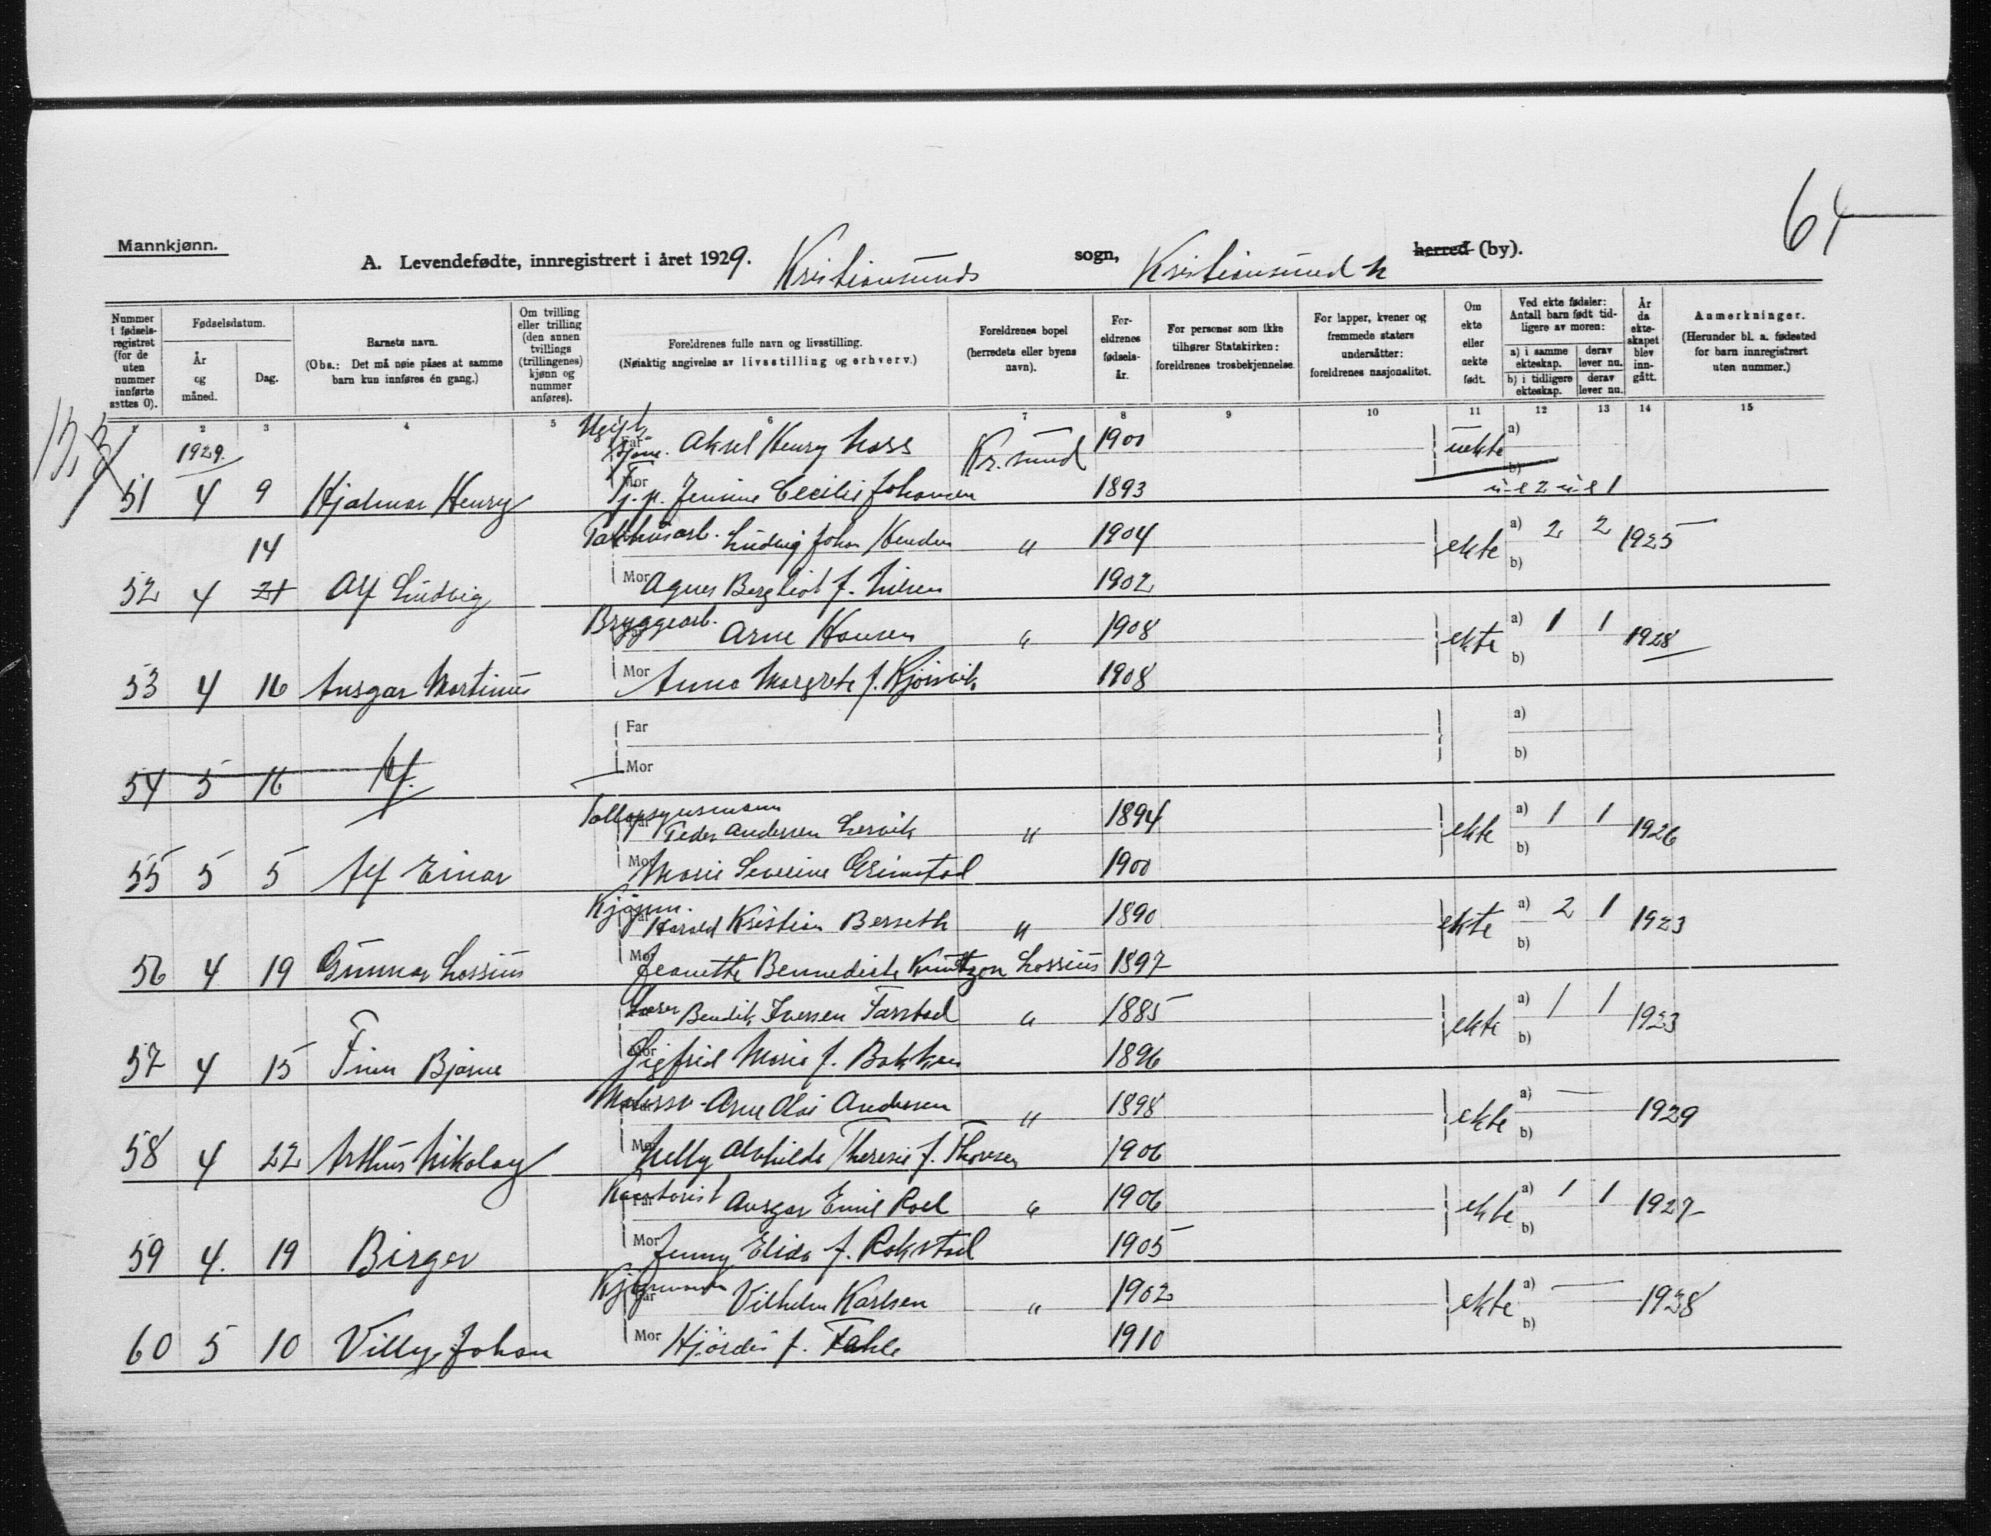 64
Mannkjønn.
A. Levendefødte, innregistrert i året 1929. Kristiansunds sogn, Kristiansund N herred (by).
Nummer i fødselsregistret (for de uten nummer innførte settes 0).
Fødselsdatum.
År og måned.
Dag.
Barnets navn.
(Obs.: Det må nøie påses at samme barn kun innføres én gang.)
Om tvilling eller trilling (den annen tvillings (trillingenes) kjønn og nummer anføres).
Foreldrenes fulle navn og livsstilling.
(Nøiaktig angivelse av livsstilling og erhverv.)
Foreldrenes bopel (herredets eller byens navn).
Foreldrenes fødselsår.
For personer som ikke tilhører Statskirken: foreldrenes trosbekjennelse.
For lapper, kvener og fremmede staters undersåtter: foreldrenes nasjonalitet.
Om ekte eller uekte født.
Ved ekte fødsler: Antall barn født tidligere av moren:
a) i samme ekteskap.
derav lever nu.
b) i tidligere ekteskap.
derav lever nu.
År da ekteskapet blev inngått.
Anmerkninger.
(Herunder bl. a. fødested for barn innregistrert uten nummer.)
1 2 3 4 5 6 7 8 9 10 11 12 13 14 15
1929.
Far Aksel Henry Kr.sund 1900 uekte a)
b)
51 4 9 Hjalmar Henry Mor Jenine Cecilie Johansen 1893 u e 2 u e 1
14
Ludvig Johan " 1904 ekte a) 2 2 1925
b)
52 4 21 Alf Ludvig Mor Agnes Bergliot f. Nilsen 1902
Bryggearb. Arne Hansen " 1908 ekte a) 1 1 1928
b)
53 4 16 Ansgar Martinus Mor Anna Margrete f. 1908
Far a)
Mor b)
54 5 16
Far Peder Andersen " 1894 ekte a) 1 1 1926
b)
55 5 5 Alf Einar Mor Marie Severine Grimstad 1900
Kjøpm.
Far Harald Kristian Berseth " 1890 ekte a) 2 1 1923
b)
56 4 19 Gunnar Lossius Mor Jeanette Bennedicte Knutzon Lossius 1897
Lærer Bendik Iversen Farstad " 1885 ekte a) 1 1 1923
b)
57 4 15 Finn Bjarne Mor Sigfrid Marie f. Bakken 1896
Arne Olai Andresen " 1898 ekte a) — 1929
b)
58 4 22 Arthur Nikolay Mor Nelly Alvhilde Therese f. Thorsen 1906
Kontorist
Far Ansgar Emil Roel " 1906 ekte a) 1 1 1927
b)
59 4. 19 Birger Mor Jenny Elida f. Rokstad 1905
Far Vilhelm Karlsen " 1902 ekte a) — 1928
b)
60 5 10 Villy Johan Mor Hjördis f. Fahle 1910